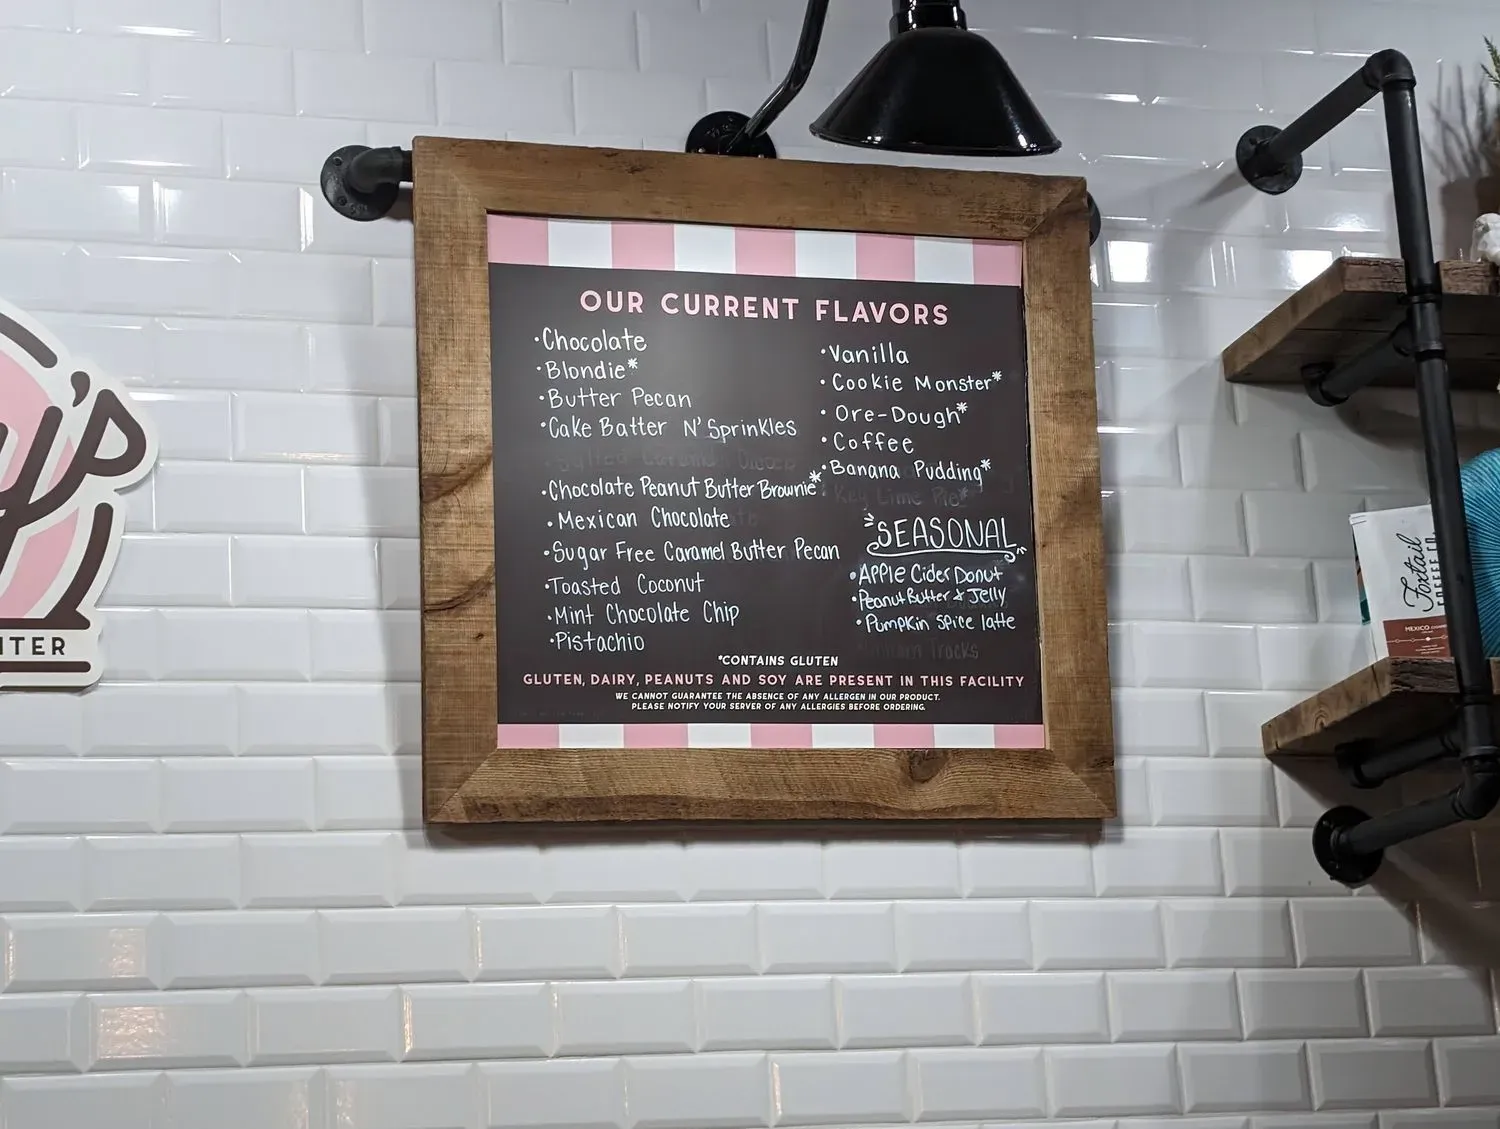 OUR CURRENT FLAVORS
•Chocolate
•Blondie*
•Butter Pecan
•Cake Batter N' Sprinkles
•Chocolate Peanut Butter Brownie*
•Mexican Chocolate
•Sugar Free Caramel Butter Pecan
•Toasted Coconut
•Mint Chocolate Chip
•Pistachio
•Vanilla
•Cookie Monster*
•Ore-Dough*
•Coffee
•Banana Pudding*
Key Lime Pie*
SEASONAL
•Apple Cider Donut
•Peanut Butter & Jelly
•Pumpkin Spice latte
Tracks
*CONTAINS GLUTEN
GLUTEN, DAIRY, PEANUTS AND SOY ARE PRESENT IN THIS FACILITY
WE CANNOT GUARANTEE THE ABSENCE OF ANY ALLERGEN IN OUR PRODUCT.
PLEASE NOTIFY YOUR SERVER OF ANY ALLERGIES BEFORE ORDERING.
y's
NTER
Foxtail
COFFEE CO.
MEXICO